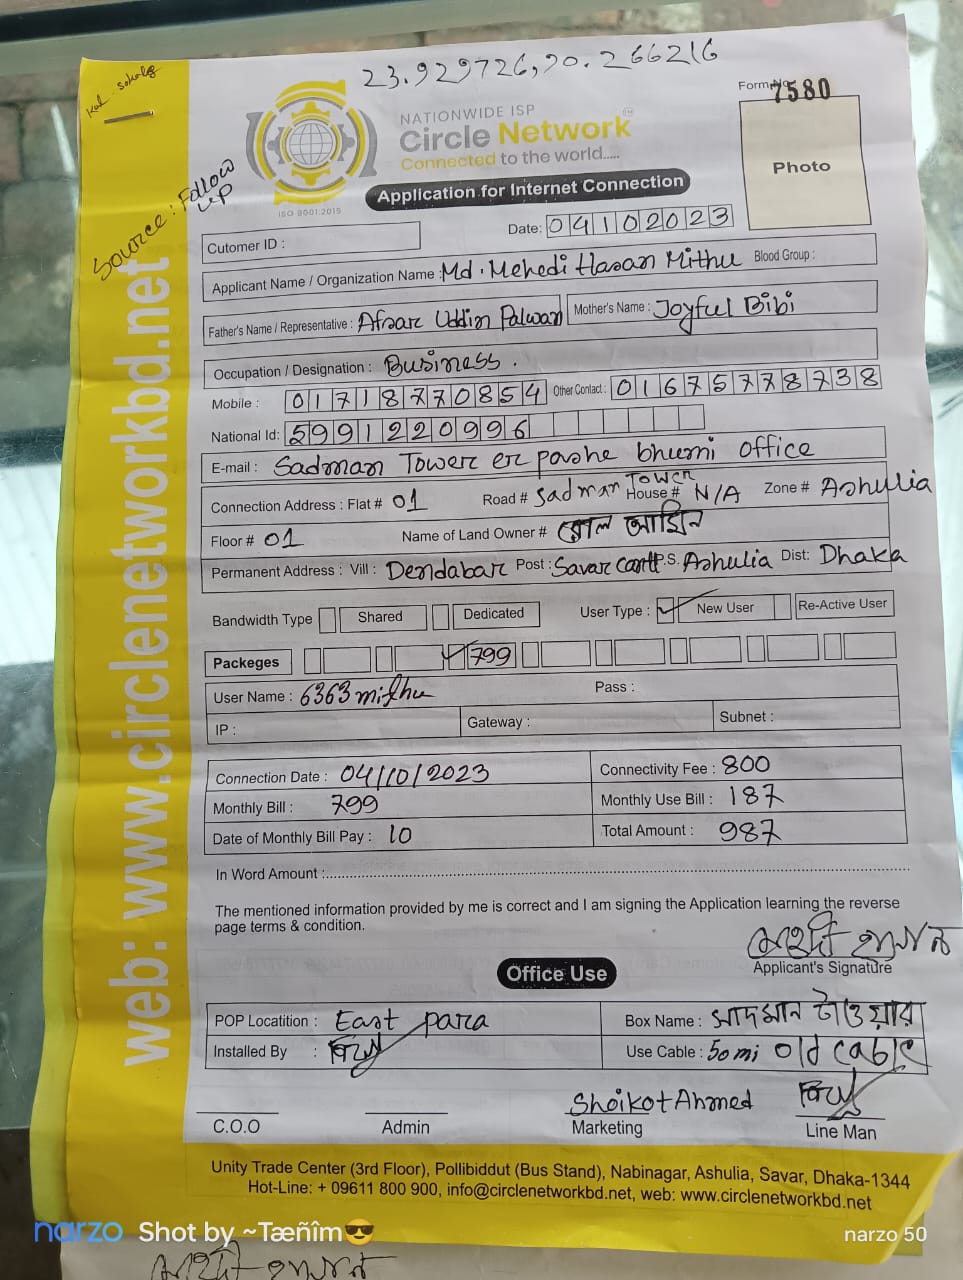 Kal sokale
23.929726,90.266216
Form No 7580
NATIONWIDE ISP
Circle Network
Connected to the world.....
ISO 9001:2015
Application for Internet Connection
Photo
Source : Follow up
Date: 04102023
Cutomer ID :
Applicant Name / Organization Name : Md. Mehedi Hasan Mithu Blood Group :
Father's Name / Representative : Afsar Uddin Palwan Mother's Name : Joyful Bibi
Occupation / Designation : Business.
Mobile : 01718770854 Other Contact : 01675778738
National Id: 5991220996
E-mail : Sadman Tower er pashe bhumi office
Connection Address : Flat # 01 Road # Sadman Tower House # N/A Zone # Ashulia
Floor # 01 Name of Land Owner # আমিন
Permanent Address : Vill : Dendabar Post : Savar cantt P.S. Ashulia Dist: Dhaka
Bandwidth Type Shared Dedicated User Type : ✓ New User Re-Active User
Packeges ✓ 799
User Name : 6363mithu Pass :
IP : Gateway : Subnet :
Connection Date : 04/10/2023 Connectivity Fee : 800
Monthly Bill : 799 Monthly Use Bill : 187
Date of Monthly Bill Pay : 10 Total Amount : 987
In Word Amount :
The mentioned information provided by me is correct and I am signing the Application learning the reverse
page terms & condition.
মেহেদি হাসান
Applicant's Signature
Office Use
POP Locatition : East para Box Name : সাদমান টাওয়ার
Installed By : Use Cable : 50mi old cable
Shoikot Ahmed
C.O.O Admin Marketing Line Man
web: www.circlenetworkbd.net
Unity Trade Center (3rd Floor), Pollibiddut (Bus Stand), Nabinagar, Ashulia, Savar, Dhaka-1344
Hot-Line: + 09611 800 900, info@circlenetworkbd.net, web: www.circlenetworkbd.net
narzo Shot by ~Tæñîm😎 narzo 50